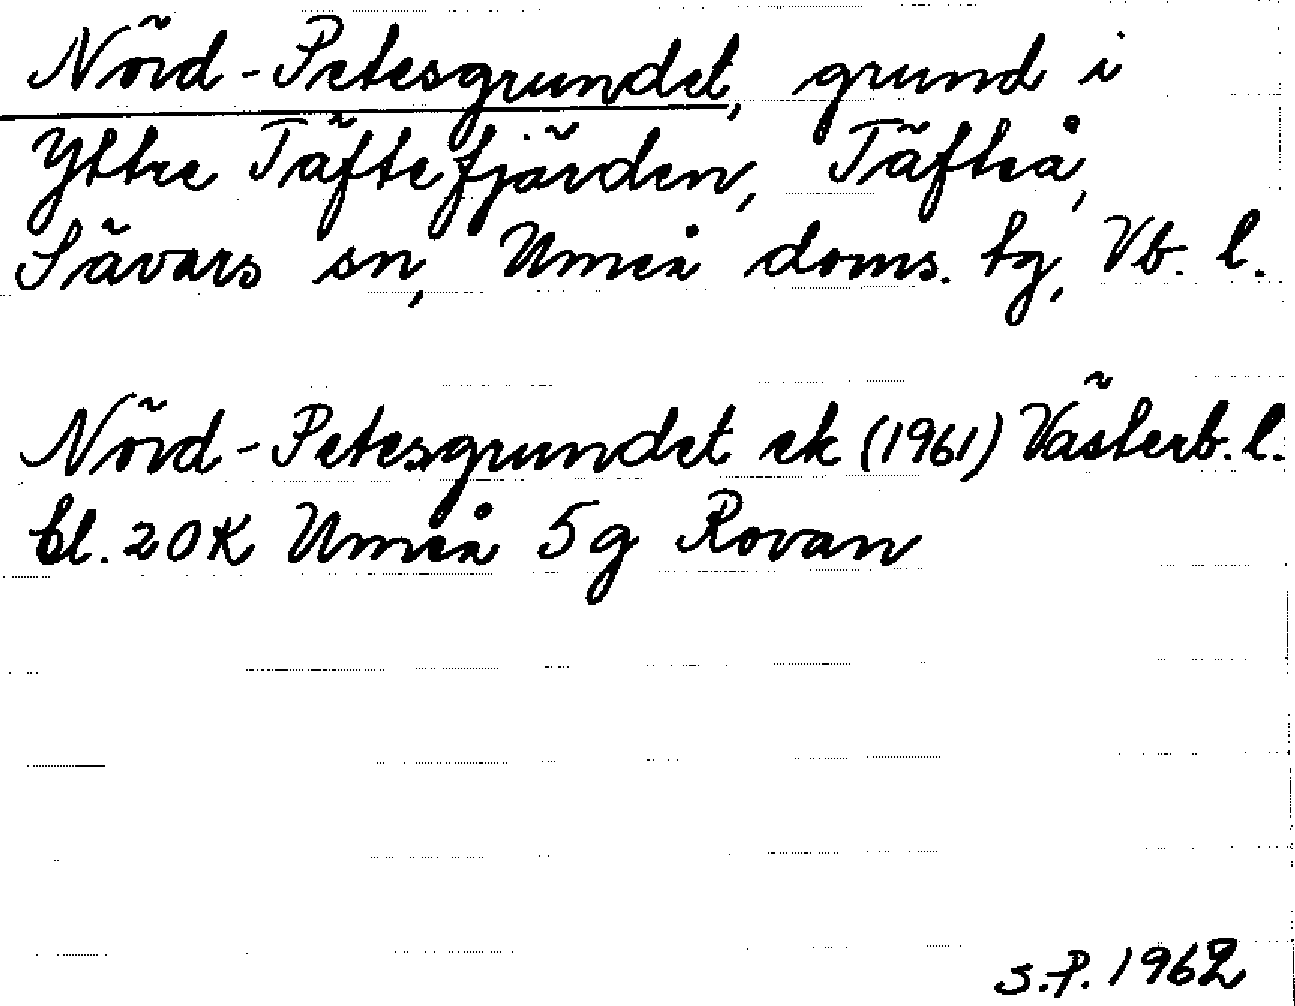 Nörd-Petesgrundet, grund i
Yttre Täftefjärden, Täfteå,
Sävars sn, Umeå doms. tg, Vb. l.
Nörd-Petesgrundet ek (1961) Västerb. l.
bl. 20K Umeå 5g Rovan
S.P. 1962